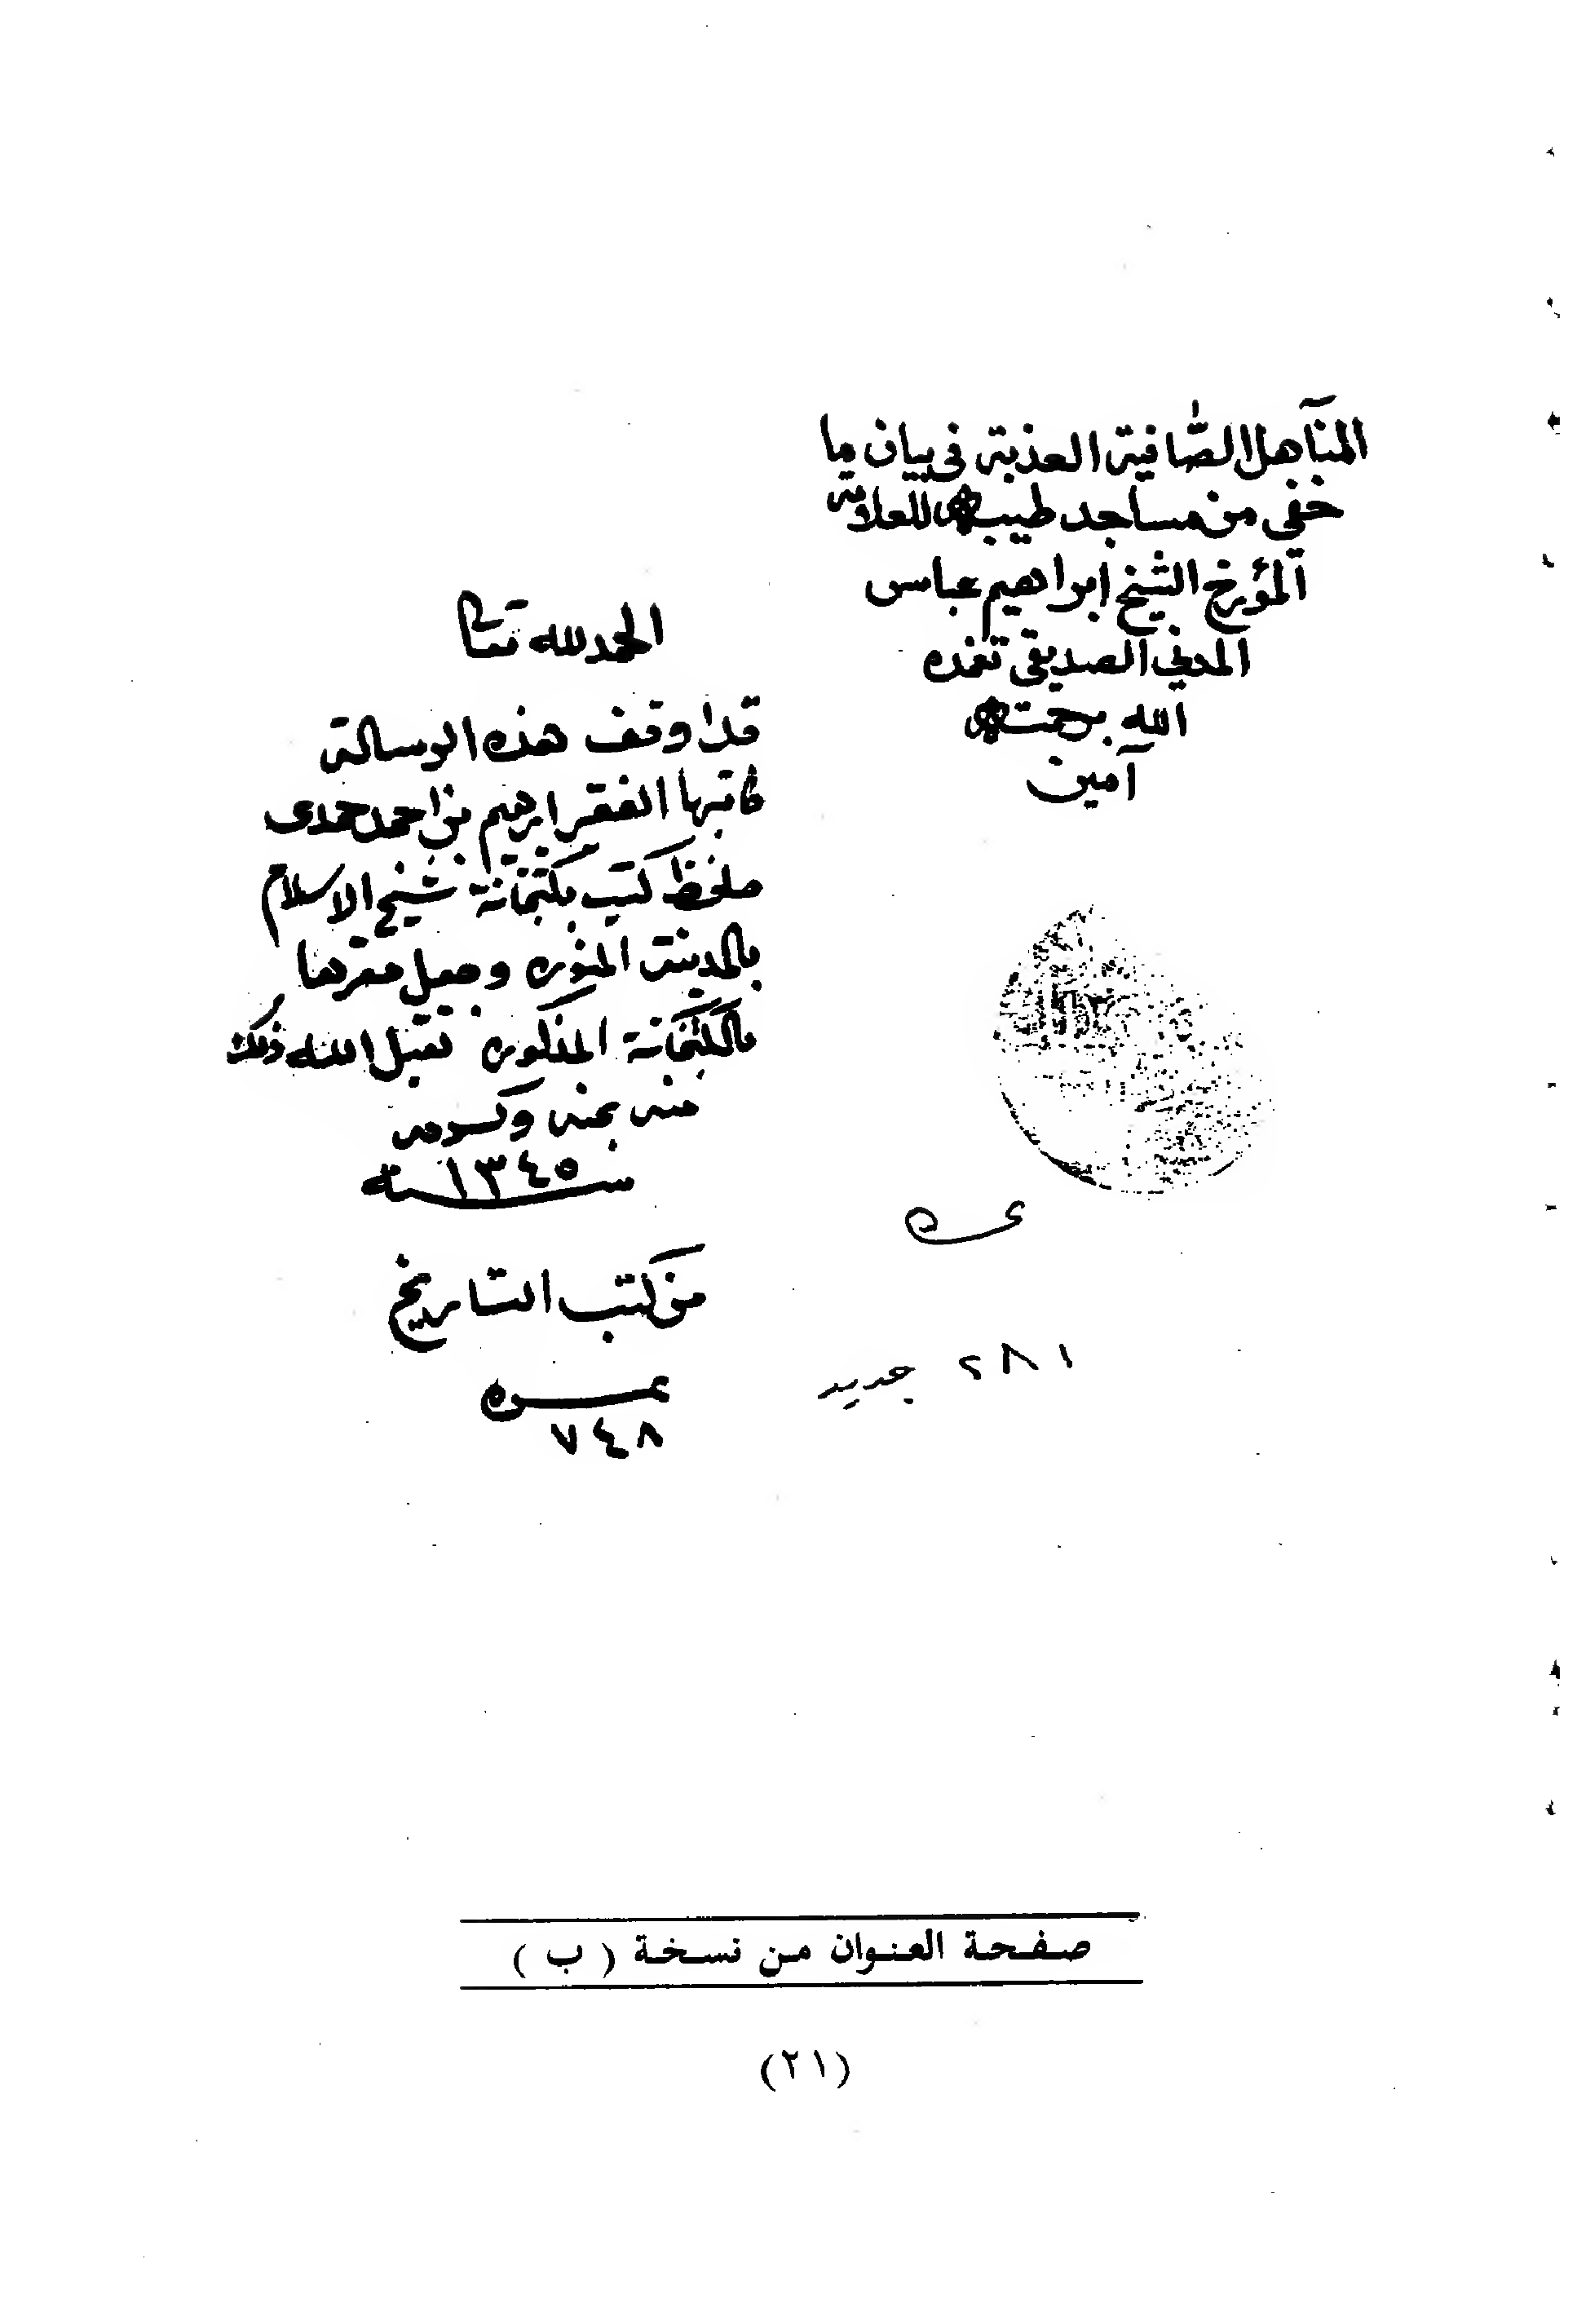 المنآهل الصّافية العذبة في بيان ما
خفي من مساجد طيبه للعلامة
المؤرخ الشيخ ابراهيم عباس
المدني الصديقي تغمده
الله برحمته
آمين
الحمد لله تعالى
قد اوقف هذه الرسالة
كاتبها الفقير ابرهيم بن احمد حمدى
حافظ كتب بكتبخانة شيخ الاسلام
بالمدينة المنوره وجعل مقرها
بالكتبخانة المذكوره تقبل الله ذلك
منه بمنه وكرمه
سنة ١٣٤٥
من كتب التاريخ
نمره
٧٤٨
٢٨١ جديد
صفحة العنوان من نسخة ( ب )
(٢١)